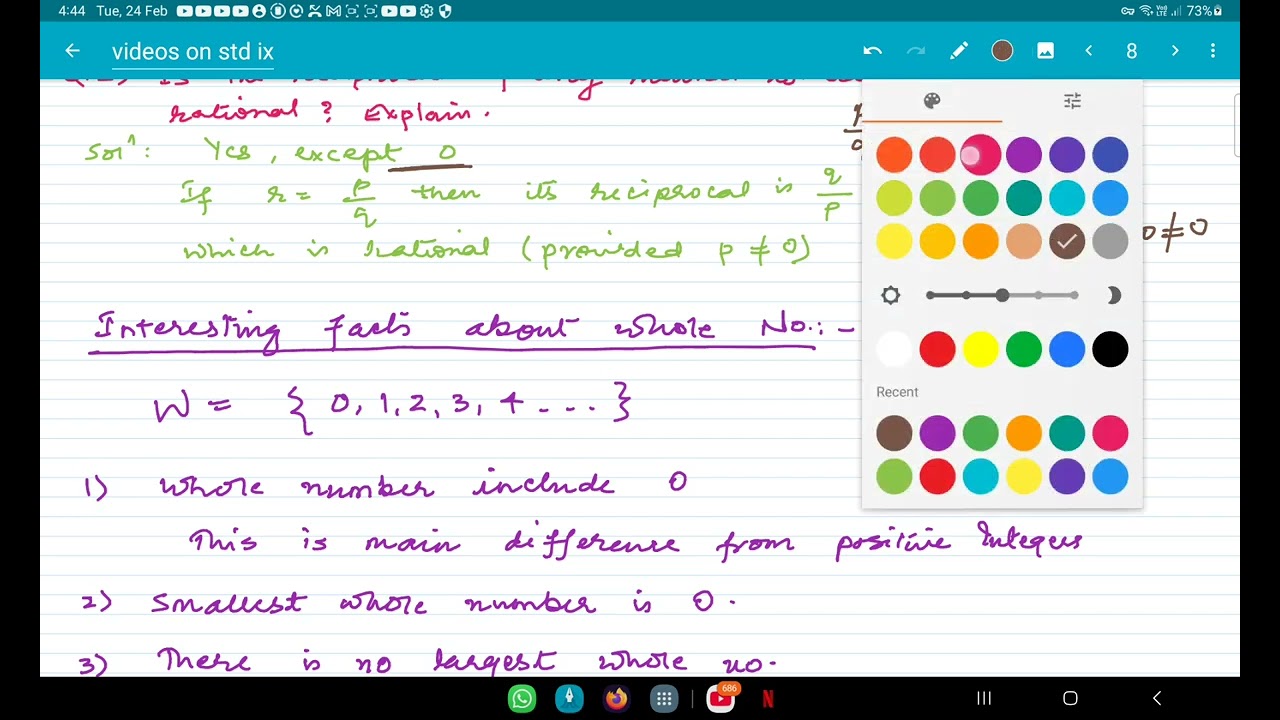 4:44 Tue, 24 Feb 73%
videos on std ix 8
rational? Explain.
Solⁿ: Yes, except 0
If r = p/q then its reciprocal is q/p
which is rational (provided p ≠ 0)
0≠0
Interesting facts about whole No.:-
W = { 0, 1, 2, 3, 4 .... }
Recent
1) whole number include 0
This is main difference from positive Integers
2) Smallest whole number is 0.
3) There is no largest whole no.
686